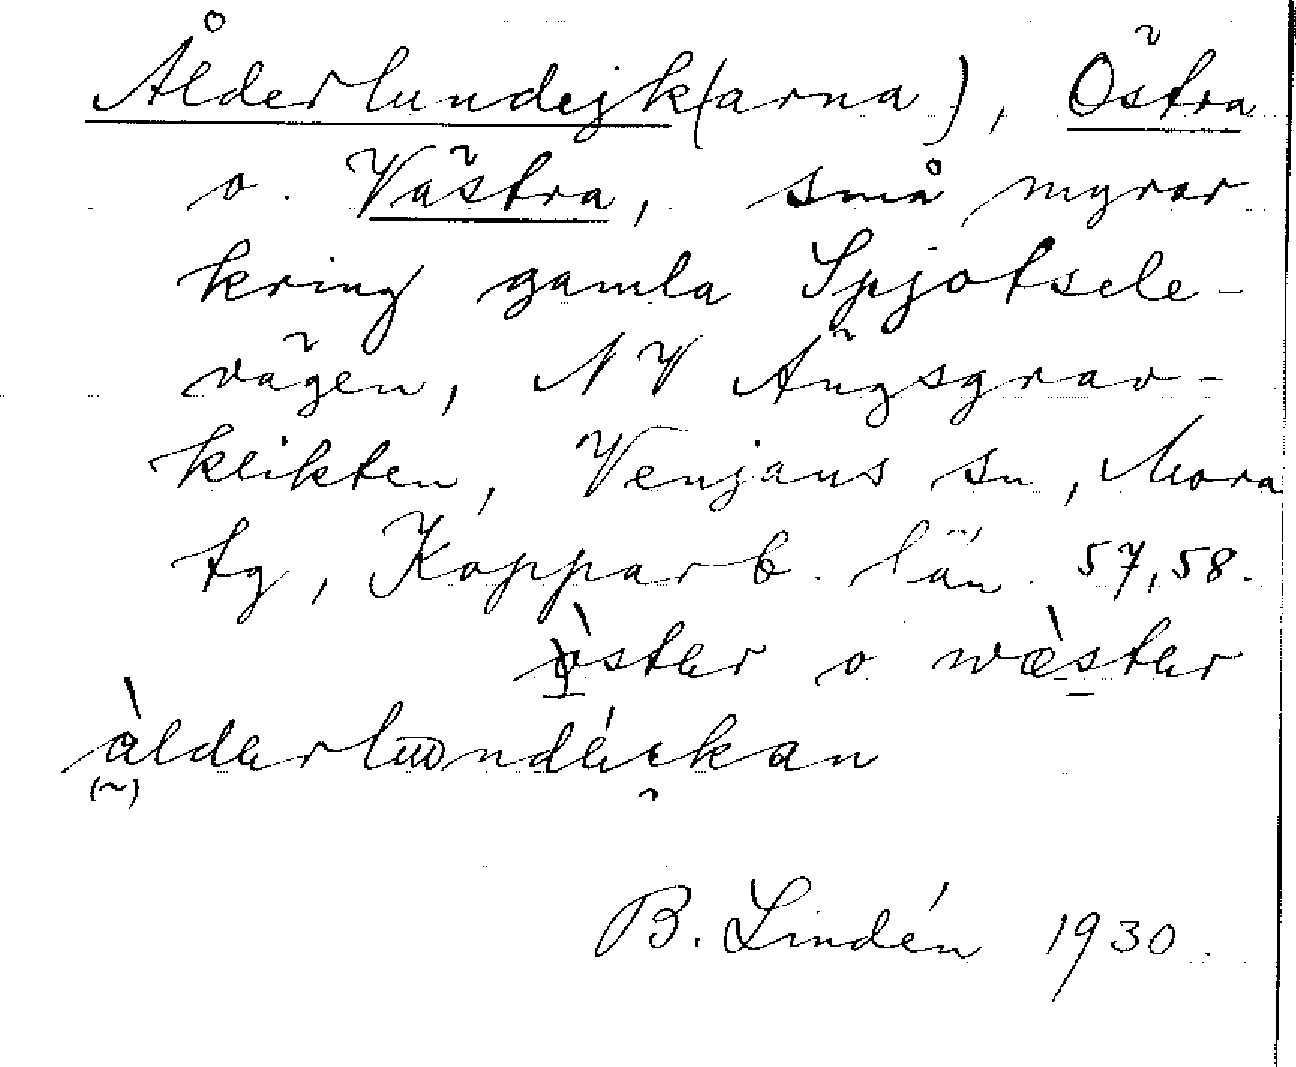 Ålderlundejk(arna), Östra
o. Västra, små myrar
kring gamla Spjotsele-
vägen, NV Ängsgrav-
klikten, Venjans sn, Mora
tg, Kopparb. län. 57,58.
òster o wæ̀ster
àlderlundéi̯kan
(~)
B. Lindén 1930.